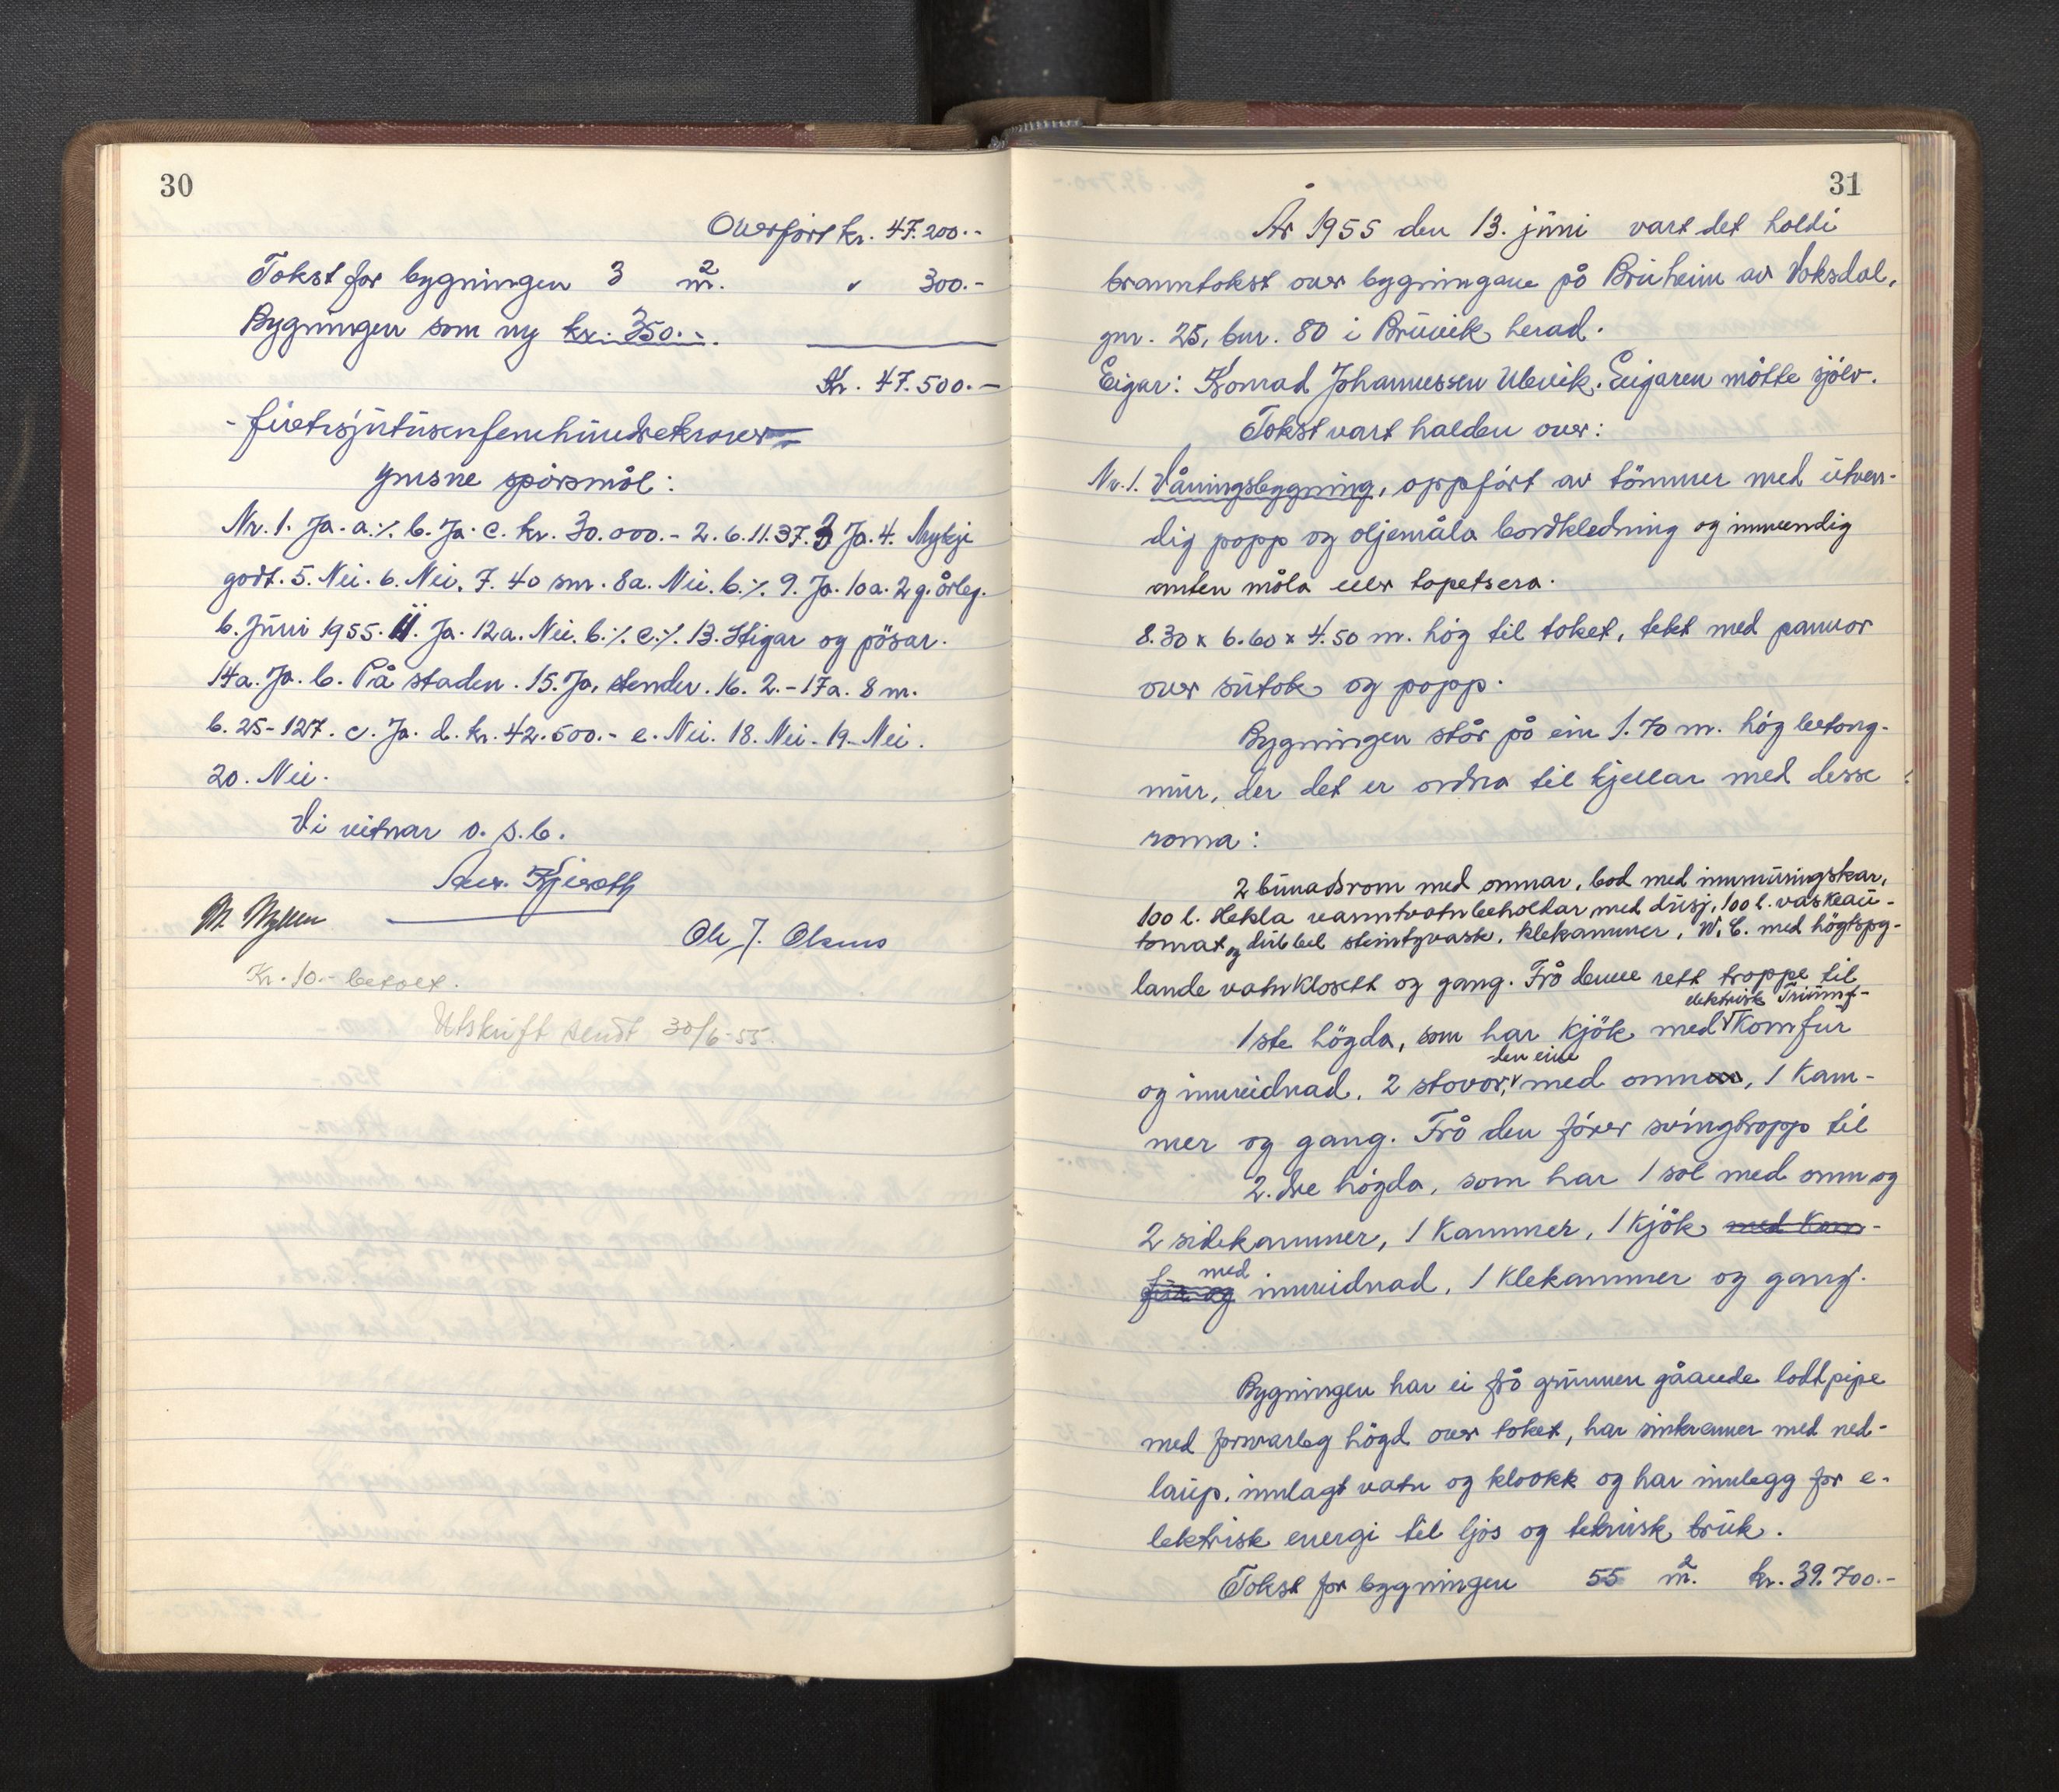 30
Overført kr. 47.200.-
Takst for bygningen 3 m². " 300.-
Bygningen som ny kr. 350.-.
Kr. 47.500.-
- førtisjutusenfemhundrekroner =
Ymsne spørsmål:
Nr. 1. Ja. a. ٪ b. Ja. c. kr. 30.000.- 2. 6.11.37. 3 Ja. 4. Mykje
godt. 5. Nei. 6. Nei. 7. 40 sm. 8a. Nei. b. ٪. 9. Ja. 10a. 2 g. årleg.
b. Juni 1955. 11. Ja. 12a. Nei. b. ٪ c. ٪. 13. Stigar og pøsar.
14a. Ja. b. På staden. 15. Ja, stender. 16. 2.- 17a. 8 m.
b. 25-127. c. Ja. d. kr. 42.500.- e. Nei. 18. Nei. 19. Nei.
20. Nei.
Vi vitnar o. s. b.
M. Myllen
Ole J.
Kr. 10.- betalt.
Utskrift sendt 30/6-55.
31
År 1955 den 13. juni vart det haldi
branntakst over bygningane på Bruheim av Vaksdal,
gnr. 25, bnr. 80 i Bruvik herad.
Eigar: Konrad Johannessen Ulevik. Eigaren møtte sjølv.
Takst vart halden over:
Nr. 1. Våningsbygning, oppført av tømmer med utven-
dig papp og oljemåla bordkledning og innvendig
anten måla eller tapetsera.
8.30 x 6.60 x 4.50 m. høg til taket, tekt med pannor
over sutak og papp.
Bygningen står på ein 1.70 m. høg betong-
mur, der det er ordna til kjellar med desse
roma:
2 bunadsrom med omnar, bod med innmuringskar,
100 l. Hekla varmtvatnbeholdar med dusj, 100 l. vaskeau-
tomat og dubbel steintyvask, klekammer, W.C. med högtspy-
lande vatnklosett og gang. Frå denne rett trappe til
elektrisk Triumf-
1ste högda, som har kjök med komfur
den eine
og innreidnad, 2 stovor, med omnar, 1 kam-
mer og gang. Frå den fører svingtrapp til
2. dre högda, som har 1 sal med omn og
2 sidekammer, 1 kammer, 1 kjök med kom-
med
fur og innreidnad, 1 klekammer og gang.
Bygningen har ei frå grunnen gåande loddpipe
med forsvarleg högd over taket, har sinkrenner med ned-
laup, innlagt vatn og kloakk og har innlegg for e-
lektrisk energi til ljos og teknisk bruk.
Takst for bygningen 55 m². kr. 39.700.-